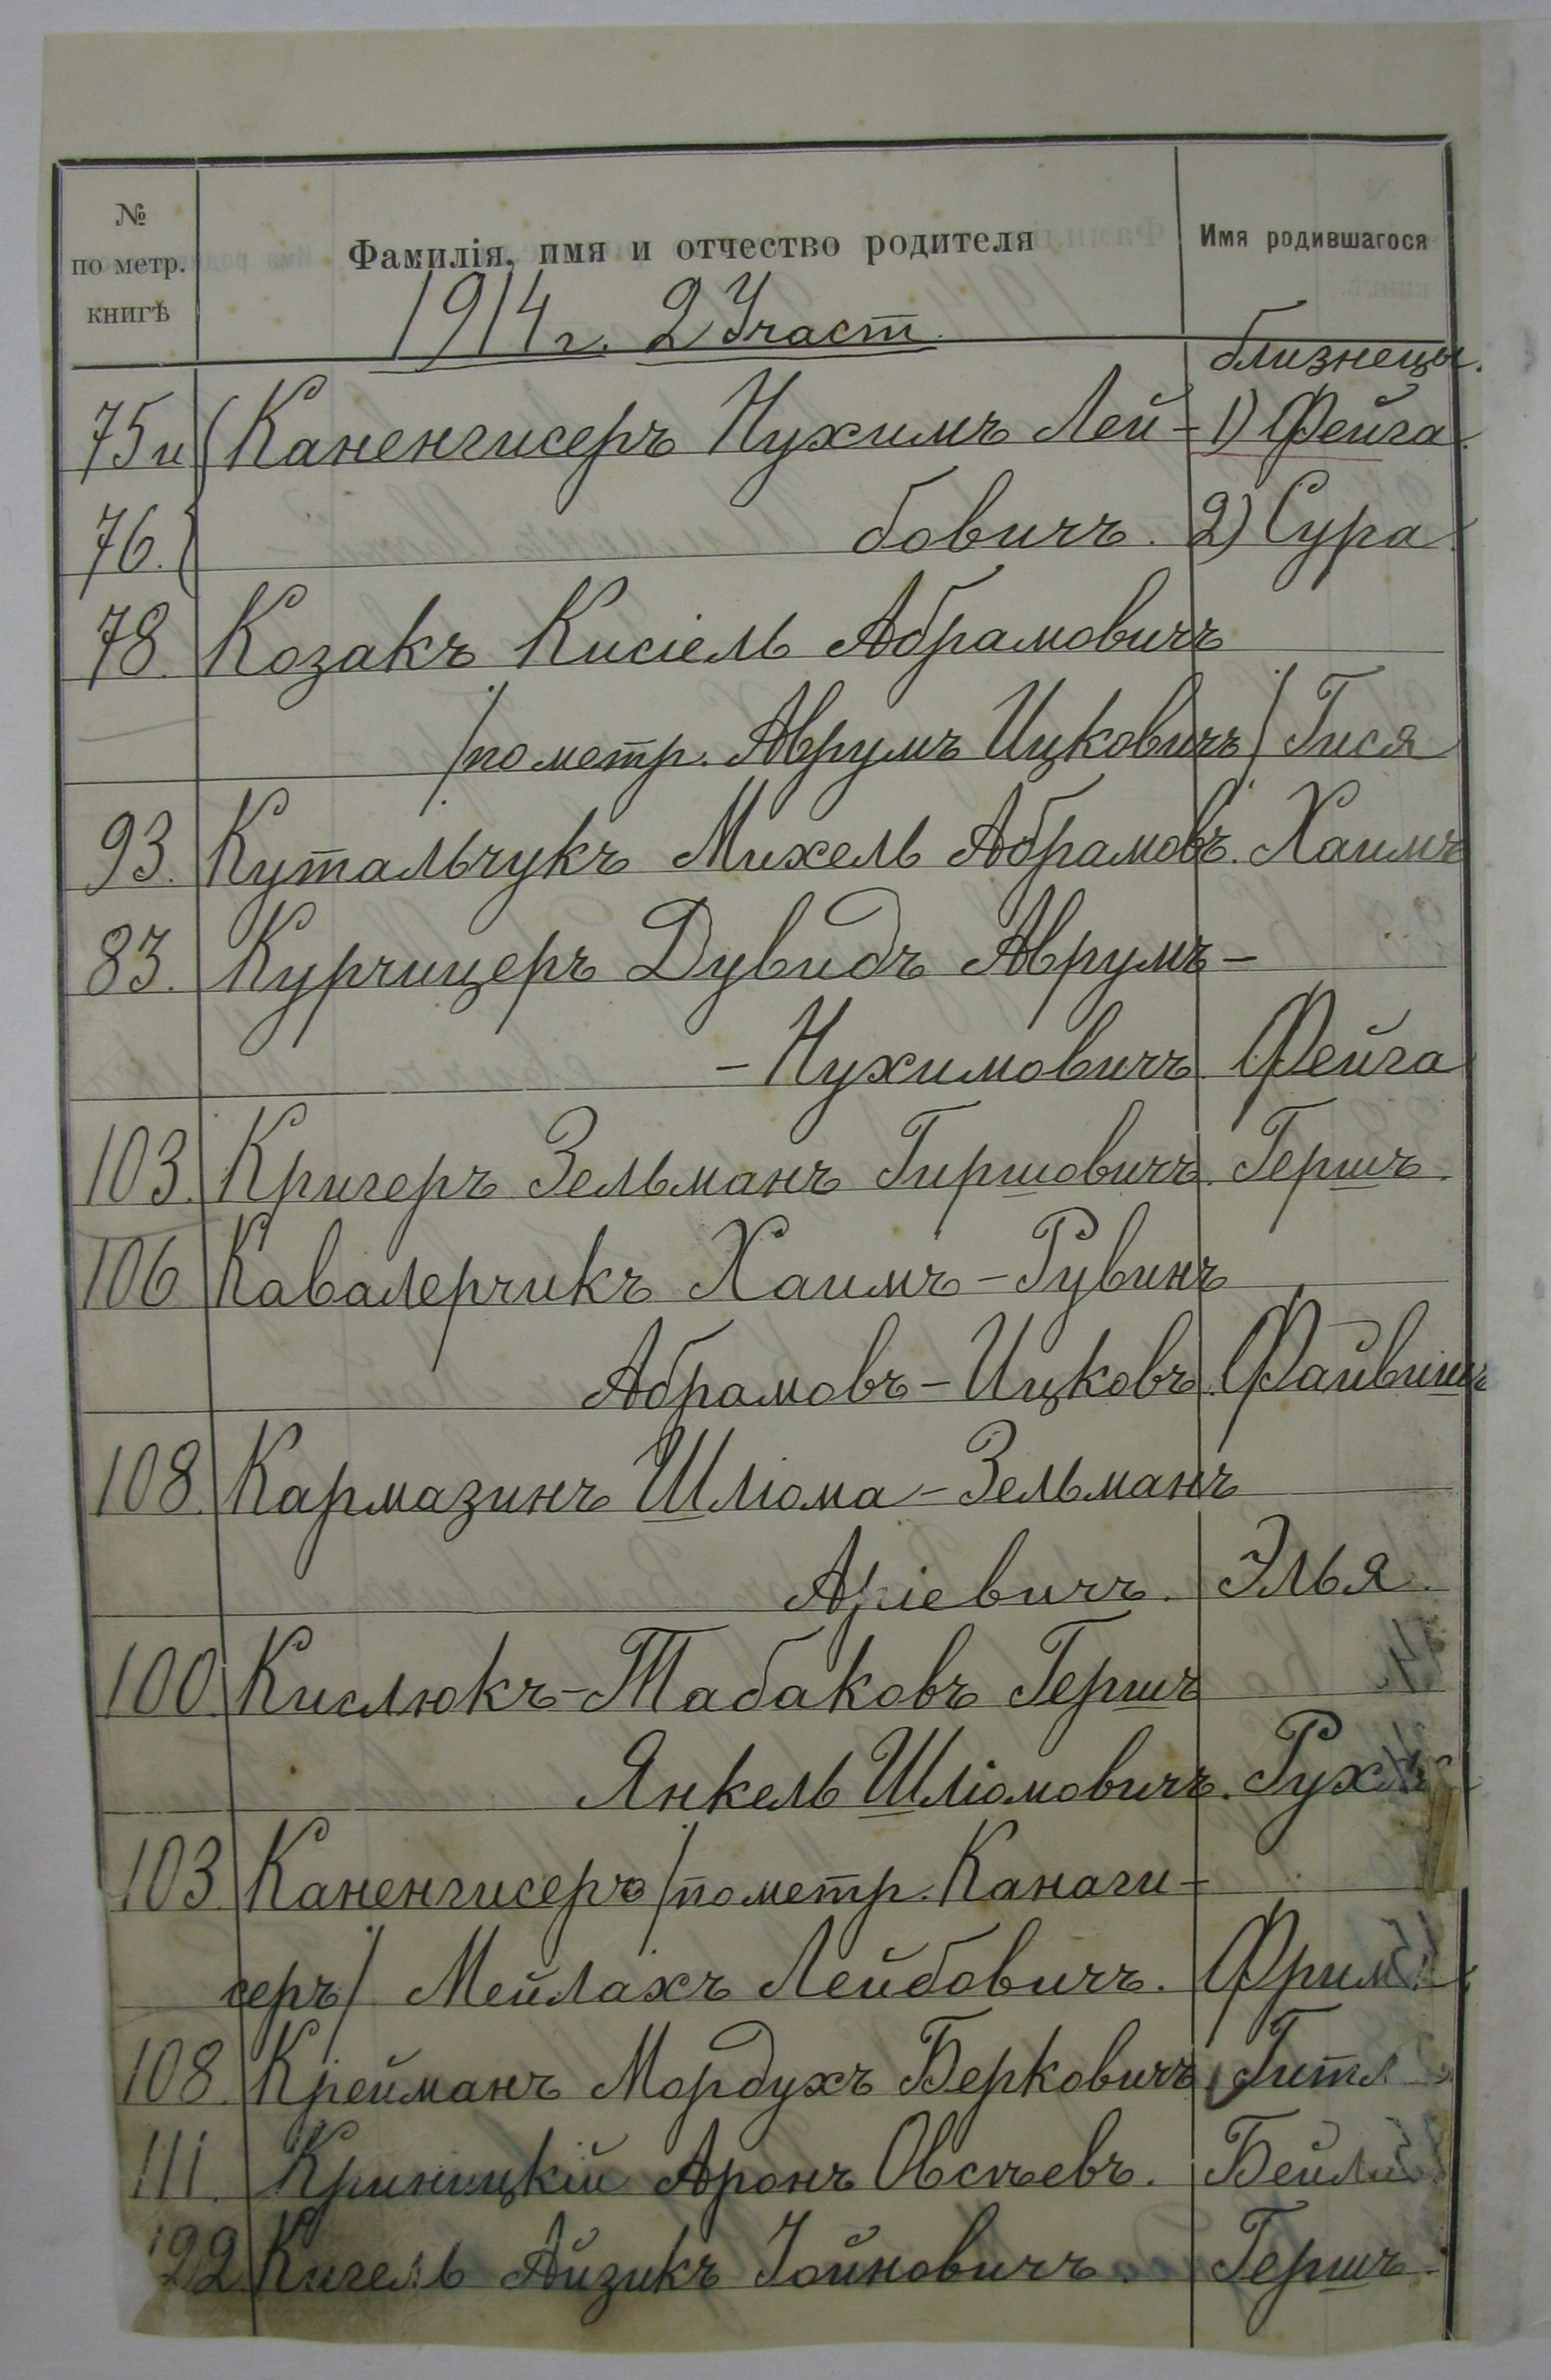 № по метр. книгѣ Фамилія, имя и отчество родителя Имя родившагося
1914 г. 2 Участ.
близнецы.
75 и Каненгисеръ Нухимъ Лей- 1) Фейга.
76. бовичъ. 2) Сура.
78. Козакъ Кисіель Абрамовичъ
/по метр. Аврумъ Ицковичъ/ Гися
93. Кутальчукъ Михель Абрамовъ. Хаимъ
83. Курчицеръ Дувидъ Аврумъ-
-Нухимовичъ. Фейга
103. Кригеръ Зельманъ Гиршовичъ. Гершъ.
106 Кавалерчикъ Хаимъ-Рувинъ
Абрамовъ-Ицковъ. Файвишъ
108. Кармазинъ Шліома-Зельманъ
Аріевичъ. Элья.
100. Кислюкъ-Табаковъ Гершъ
Янкель Шліомовичъ.
103. Каненгисеръ /по метр. Канаги-
серъ/ Мейлахъ Лейбовичъ.
108. Крейманъ Мордухъ Берковичъ.
111. Криницкій Аронъ Овсѣевъ.
122 Кигель Айзикъ Іойновичъ. Гершъ.